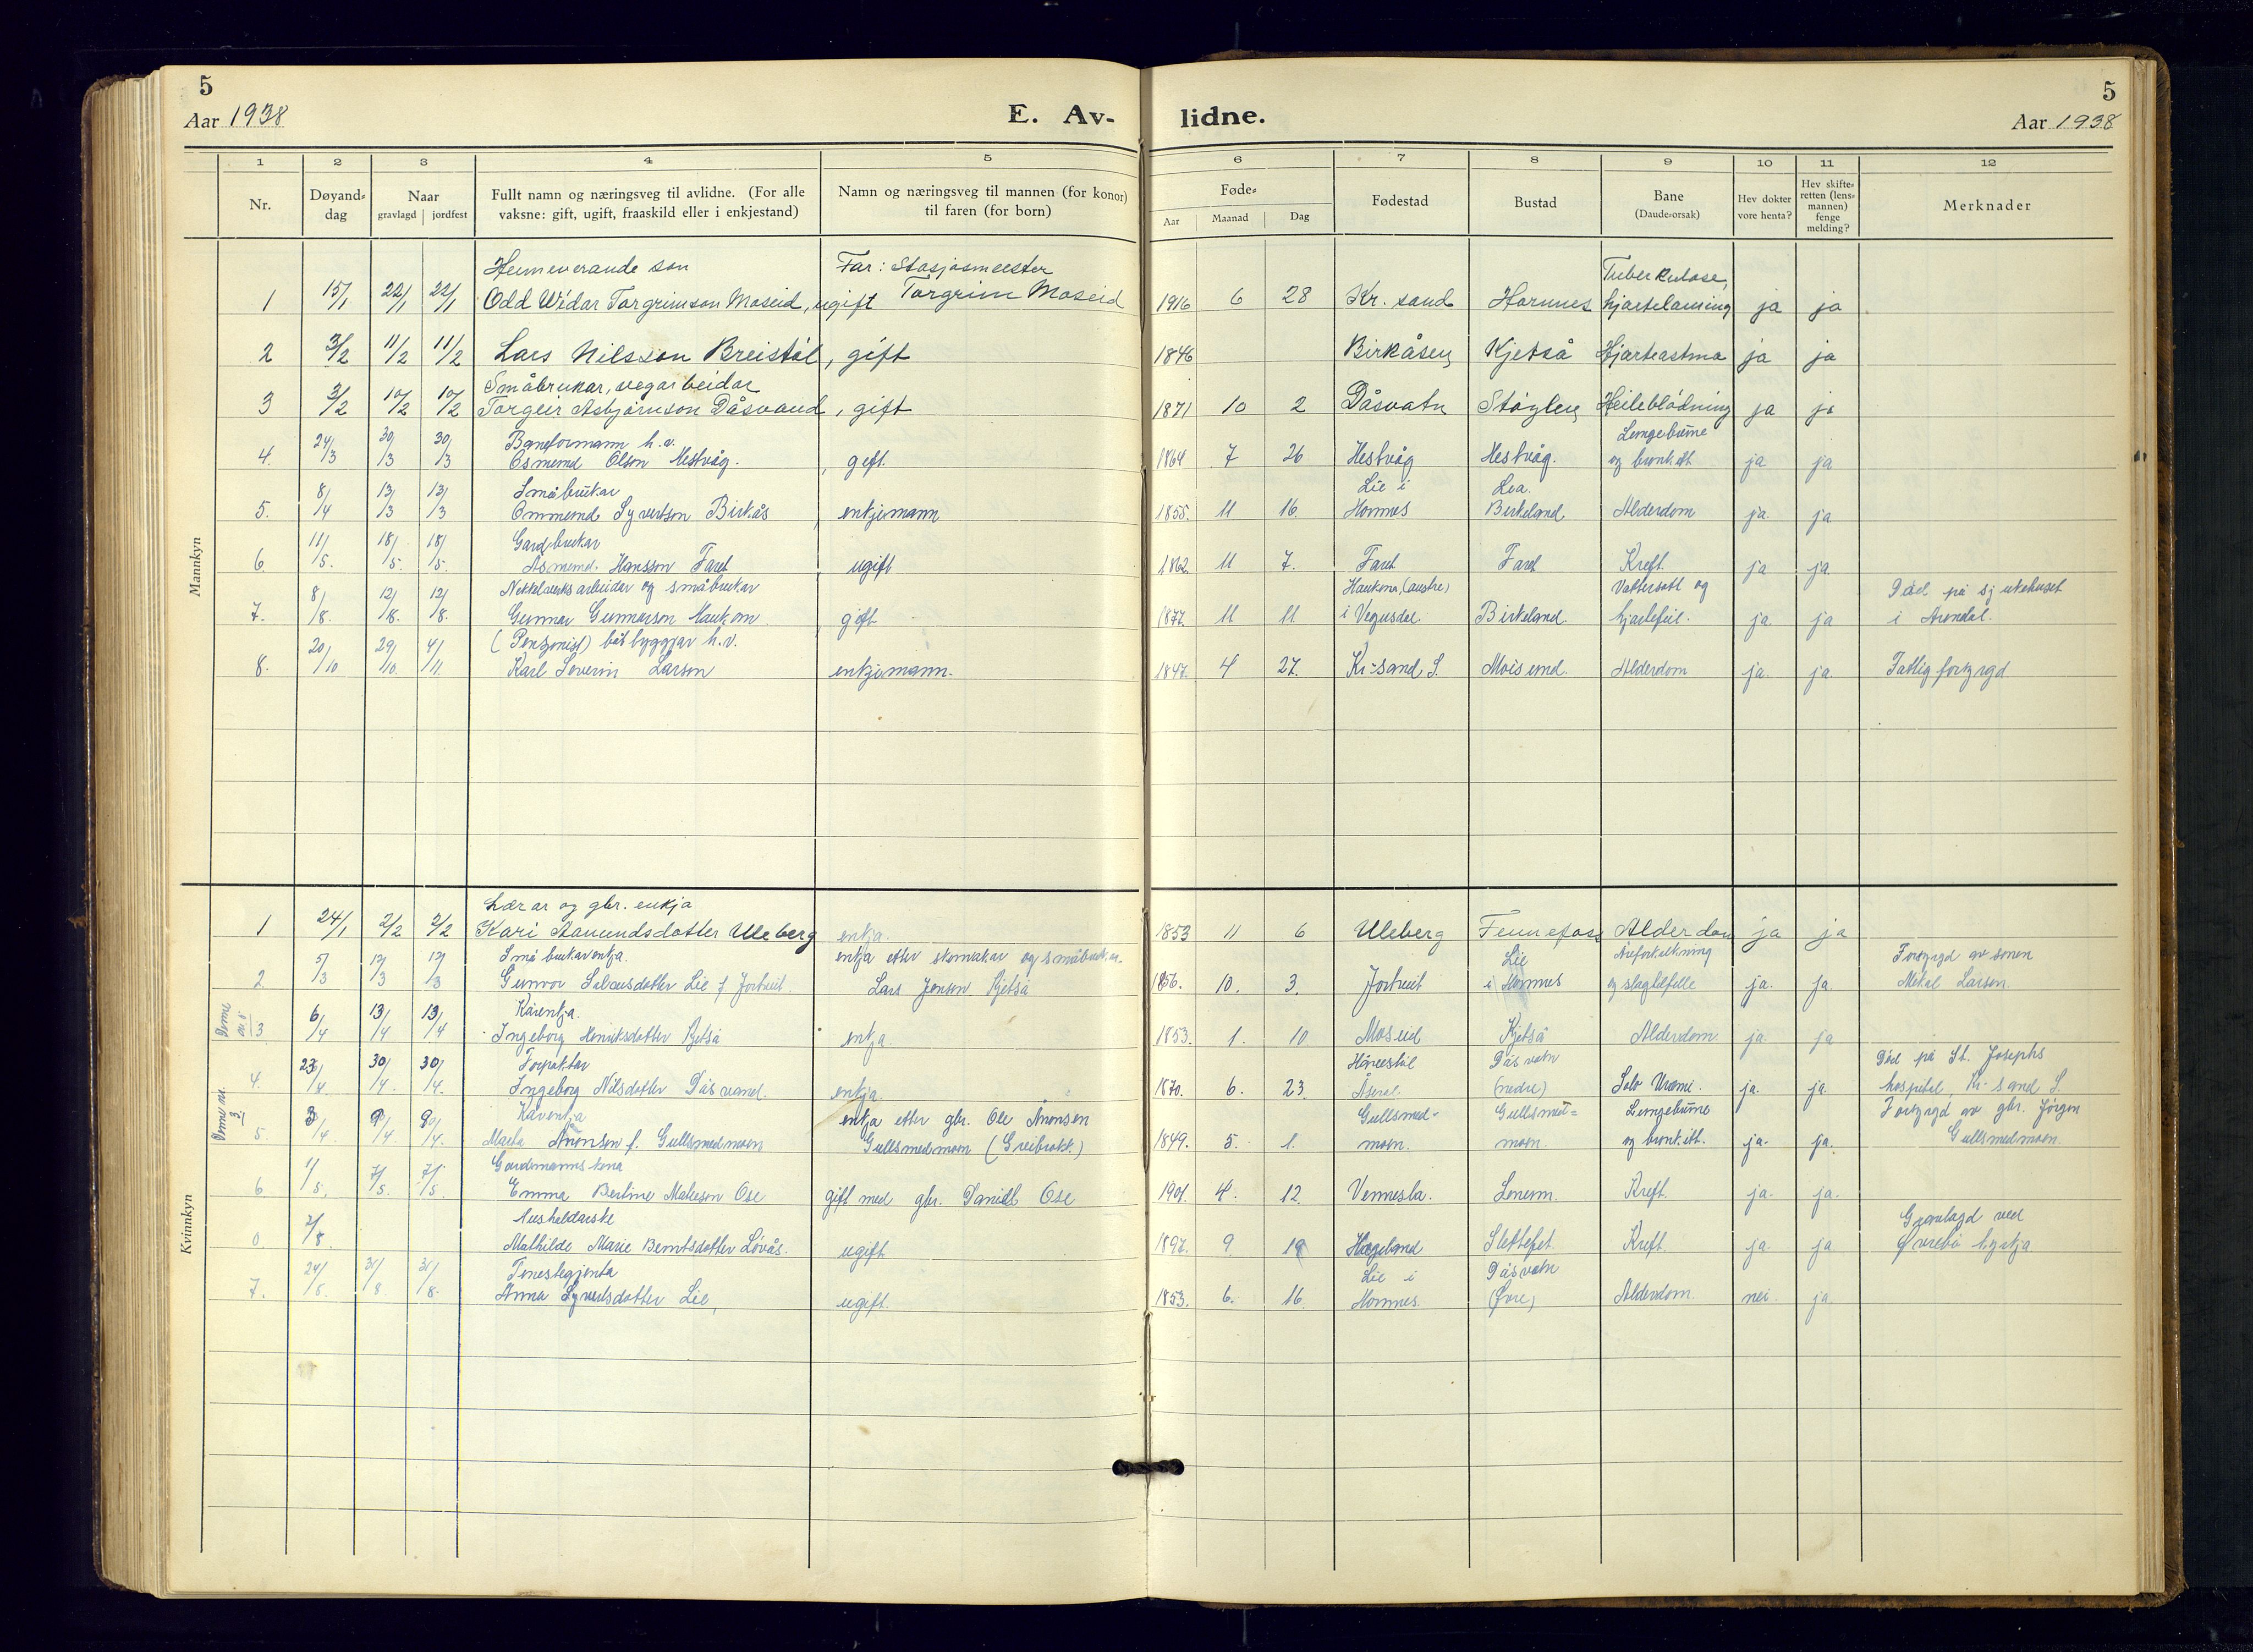 5
Aar 1938
E. Av-
lidne.
5
Aar 1938
1 2 3 4 5 6 7 8 9 10 11 12
Nr.
Døyand-dag
Naar
gravlagd | jordfest
Fullt namn og næringsveg til avlidne. (For alle
vaksne: gift, ugift, fraaskild eller i enkjestand)
Namn og næringsveg til mannen (for konor)
til faren (for born)
Føde-
Aar Maanad Dag
Fødestad
Bustad
Bane
(Daude-orsak)
Hev dokter
vore henta?
Hev skifte-
retten (lens-
mannen)
fenge
melding?
Merknader
Mannkyn
Heimeverande son Far: Stasjosmeester Tuberkulose,
1 15/1 22/1 22/1 Odd Widar Torgrimson Moseid, ugift Torgrim Moseid 1916 6 28 Kr. sand Hornnes hjartelaming ja ja
2 3/2 11/2 11/2 Lars Nilsson Breistøl, gift 1846 Birkåsen Kjetså Hjarteastma ja ja
Småbrukar, vegarbeidar
3 3/2 10/2 10/2 Torgeir Asbjørnson Dåsvand, gift 1871 10 2 Dåsvatn Støylen Heileblødning ja ja
Baneformann h.v. Lungebune
4. 24/3 30/3 30/3 Osmund Olson Hestvåg. gift. 1864 7 26 Hestvåg Hestvåg. og bronkitt ja ja
Småbrukar Lie i Lia.
5. 8/4 13/3 13/3 Ommund Syvertson Birkås enkjemann 1855. 11 16. Hornnes Birkeland Alderdom ja. ja
Gardbrukar
6. 11/5. 18/5. 18/5. Asmund Hansson Faret ugift 1862. 11 7. Faret Faret Kreft. ja ja.
Nikkelverksarbeidar og småbrukar Haukom (austre) Vattersott og Død på sjukehuset
7. 8/8. 12/8. 12/8. Gunnar Gunnarson Haukom. gift 1877. 11 11. i Vegusdal. Birkeland. hjartefeil. ja. ja i Arendal.
(Pensjonist) båtbyggjar h.v.
8. 20/10 29/10. 4/11. Karl Severin Larson enkjemann. 1847. 4 27. Kr.sand S. Moisund. Alderdom ja. ja. Fattigforsyrgd
Kvinnkyn
Lærar og gbr. enkja
1 24/1 2/2 2/2 Kari Aamundsdotter Uleberg enkja. 1853 11 6 Uleberg Fennefoss Alderdom ja ja
Småbrukarenkja. enkja etter skomakar og småbrukar Lie Åreforkalkning Forsyrgd av sonen
2 5/3 12/3 12/3 Gunvor Salvesdotter Lie f. Jortveit. Lars Jenson Kjetså 1856. 10. 3. Jortveit i Hornnes og slagtilfelle ja. ja. Mikal Larsen.
Kårenkja.
3 6/4 13/4 13/4 Ingeborg Henriksdotter Kjetså enkja 1853. 1. 10 Moseid Kjetså Alderdom. ja. ja
Forpaktar Håvestøl Dåsvatn Død på St. Josephs
4. 23/4. 30/4. 30/4. Ingeborg Nilsdotter Dåsvand. enkja. 1870. 6. 23. Åseral. (nedre) Uræmi. ja. ja. hospital Kr.sand S.
Kårenkja enkja etter gbr. Ole Aronsen Gullsmed- Gullsmed= Lungebune Forsyrgd av gbr. Jørgen
5. 3/4. 9/4. 9/4. Marta Aronsen f. Gullsmedmoen Gullsmedmoen 1849. 5. 1. moen. moen. og bronkitt. ja. ja. Gullsmedmoen.
Gardmannskona
6 1/5. 7/5. 7/5. Emma Berline Ose gift med gbr. Daniel Ose 1901. 4. 12. Vennesla. Kreft. ja. ja.
Hushaldarske Gravlagd ved
0 2/8. Mathilde Marie Berntsdotter Løvås. ugift 1897. 9. 19 Hægeland Slettefet. Kreft. ja. ja Øvrebø kyrkja.
Tenestegjenta Lie i Dåsvatn
7. 24/8. 31/8 31/8. Anna Syvertsdotter Lie, ugift. 1853. 6. 16. Hornnes. (Øvre) Alderdom. nei. ja